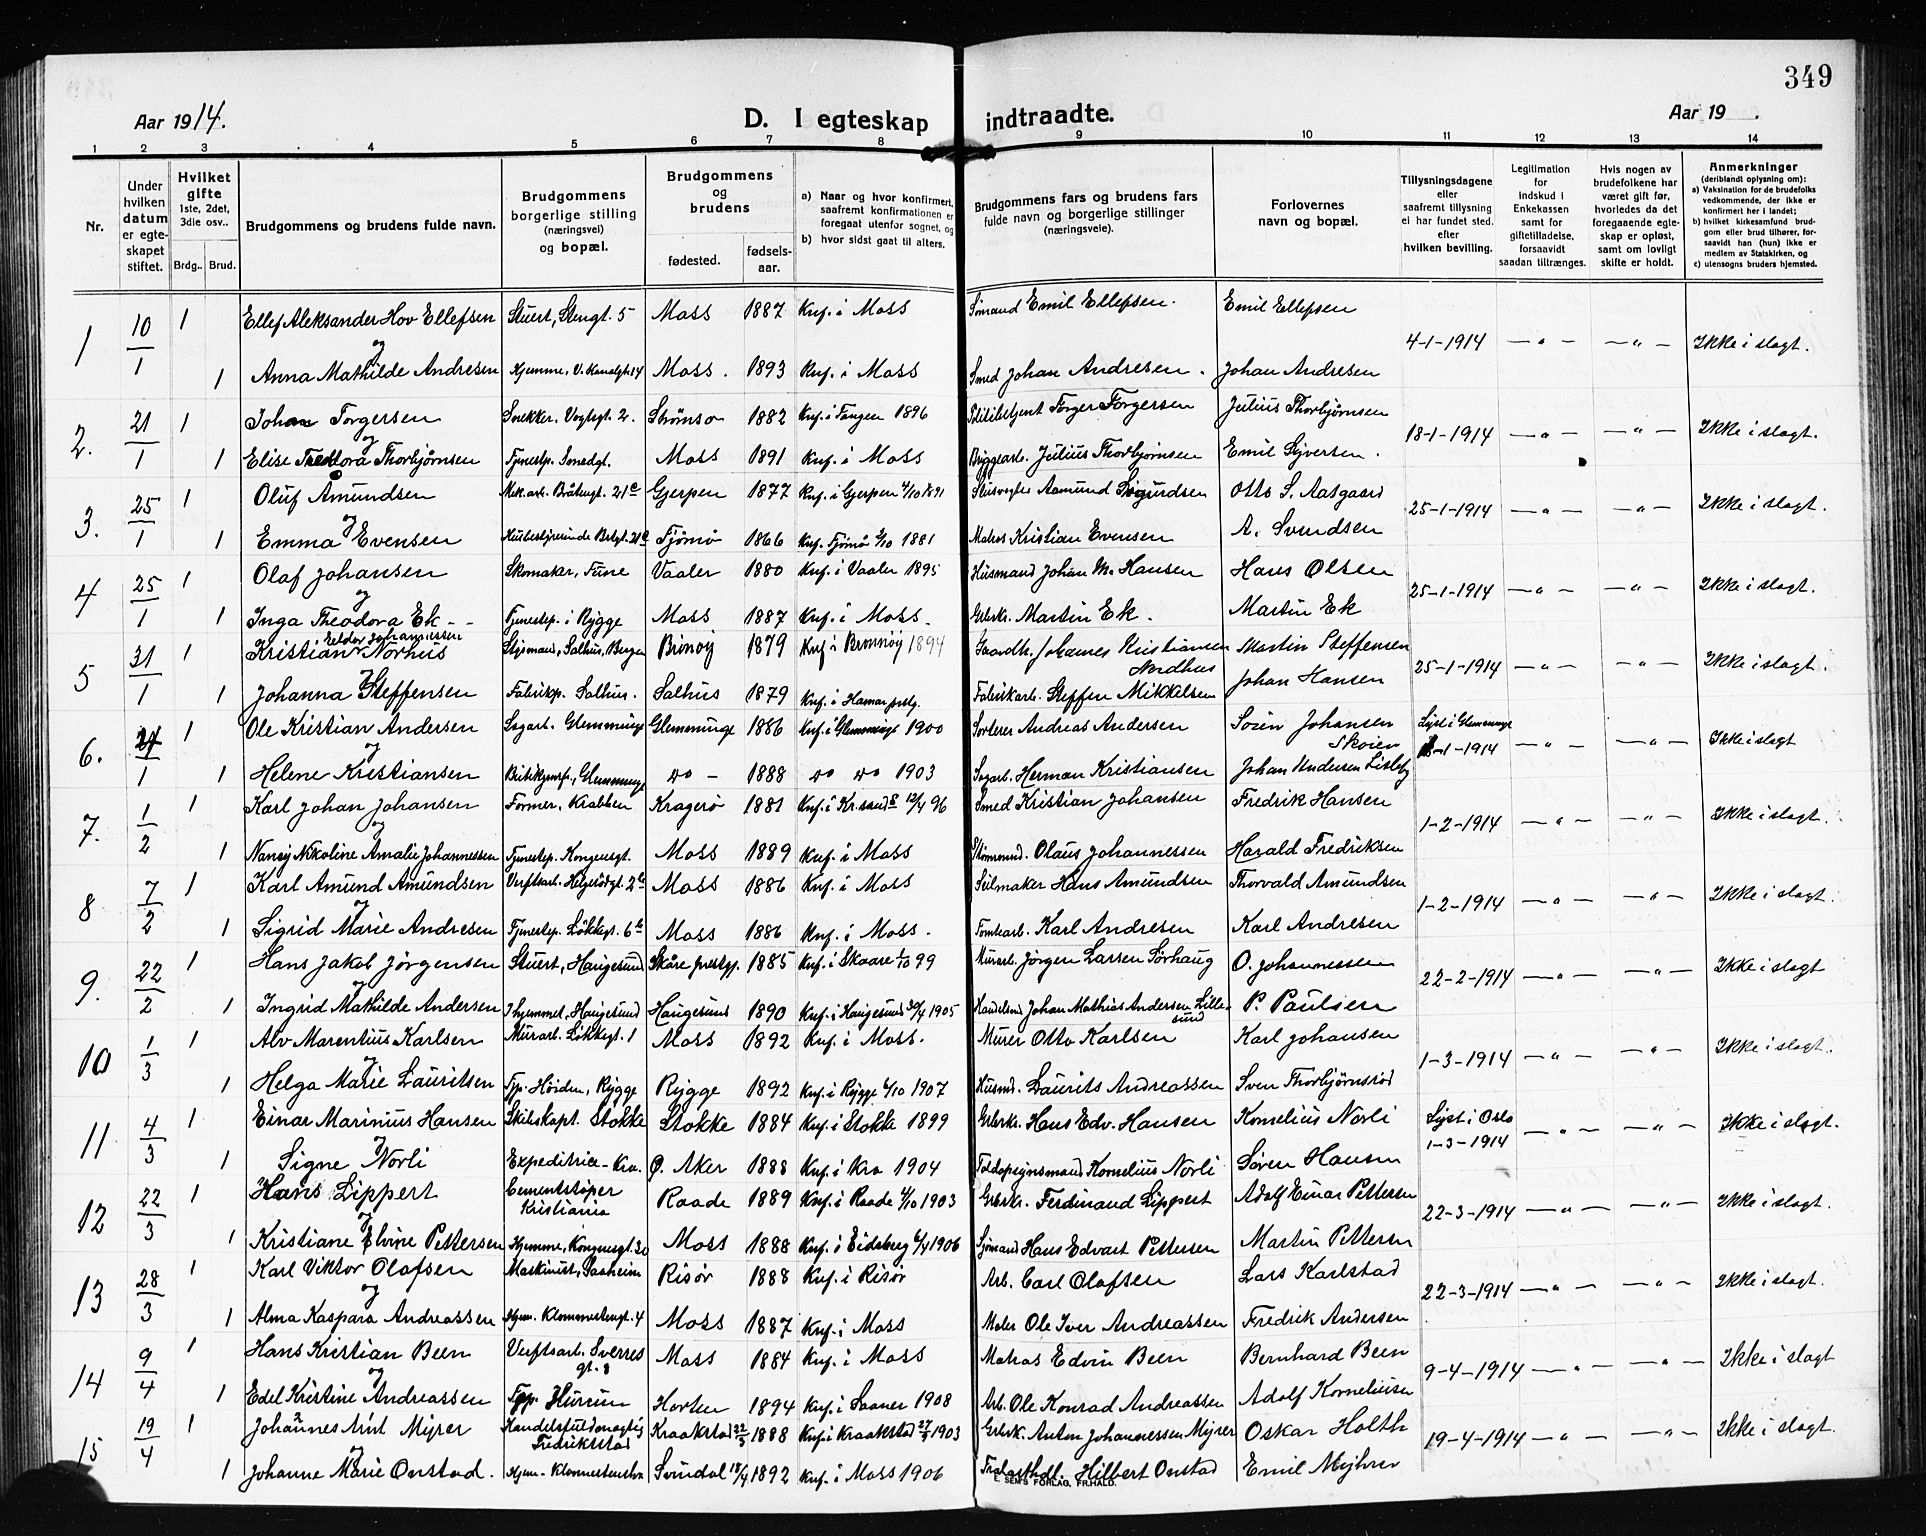 349
Aar 1914.
D. I egteskap indtraadte.
Aar 19 .
1 2 3 4 5 6 7 8 9 10 11 12 13 14
Nr.
Under hvilken datum er egteskapet stiftet.
Hvilket gifte 1ste, 2det, 3die osv..
Brdg.. Brud.
Brudgommens og brudens fulde navn.
Brudgommens borgerlige stilling (næringsvei) og bopæl.
Brudgommens og brudens
fødested. fødselsaar.
a) Naar og hvor konfirmert, saafremt konfirmationen er foregaat utenfor sognet, og
b) hvor sidst gaat til alters.
Brudgommens fars og brudens fars fulde navn og borgerlige stillinger (næringsveie).
Forlovernes navn og bopæl.
Tillysningsdagene eller saafremt tillysning ei har fundet sted. efter hvilken bevilling.
Legitimation for indskud i Enkekassen samt for giftetilladelse, forsaavidt saadan tiltrænges.
Hvis nogen av brudefolkene har været gift før, hvorledes da det foregaaende egteskap er opløst, samt om lovligt skifte er holdt.
Anmerkninger (deriblandt oplysning om): a) Vaksination for de brudefolks vedkommende, der ikke er konfirmert her i landet; b) hvilket kirkesamfund brudgom eller brud tilhører, forsaavidt han (hun) ikke er medlem av Statskirken, og c) utensogns bruders hjemsted.
1 10/1 1 Ellef Aleksander Hov Ellefsen Stuert, Stengt. 5 Moss 1887 Knf. i Moss Sømand Emil Ellefsen. Emil Ellefsen
og 4-1-1914 —„— —„— Ikke i slagt.
1 Anna Mathilde Andresen Hjemme, V. Kanalgt. 14 Moss. 1893 Knf. i Moss Smed Johan Andresen. Johan Andresen
2. 21/1 1 Johan Torgersen Snekker. Vogtsgt. 2. Strømsø 1882 Knf. i Tangen 1896 Torger Torgersen Julius Thorbjørnsen
og 18-1-1914 —„— —„— Ikke i slagt.
1 Elise Teodora Thorbjørnsen Tjenestep. Moss 1891 Knf. i Moss Bryggearb. Julius Thorbjørnsen Emil Syversen.
3. 25/1 1 Oluf Amundsen Mek. arb. 21 c Gjerpen 1877 Knf. i Gjerpen 4/10 1891 Aamund Sigurdsen Otto S. Aasgaard
og 25-1-1914 —„— —„— Ikke i slagt.
1 Emma Evensen Tjømø 1866 Knf. Tjømø 1881 Matros Kristian Evensen A. Svendsen
4 25/1 1 Olaf Johansen Skomaker, Tune Vaaler 1880 Knf. i Vaaler 1895 Husmand Johan M. Hansen Hans Olsen
og 25-1-1914 —„— —„— Ikke i slagt.
1 Inga Theodora Ek - - Tjenestep. i Rygge Moss 1887 Knf. i Moss. Grbrkr. Martin Ek. Martin Ek
5 31/1 1 Kristian Norhus Styrmand, Salhus, Bergen Brønøy 1879 Knf i Brønnøy 1894 Gaardb. Johannes Kristiansen Nordhus Martin Steffensen
og 25-1-1914 —„— —„— Ikke i slagt.
1 Johanna Steffensen Fabrikp. Salhus. Salhus 1879 Knf. i Hamar prstg. Fabrikarb. Steffen Mikkelsen Johan Hansen
6. 1 Ole Kristian Andersen Sagarb. Glemminge Glemminge 1886 Knf. i Glemminge 1900 Sorterer Andreas Andersen Søren Johansen Skoien Lyst i Glemminge
og -1-1914 —„— —„— Ikke i slagt
1 Helene Kristiansen Glemminge do - 1888 do do 1903 Sagarb. Herman Kristiansen Johan Andersen Lisleby
7. 1/2 1 Karl Johan Johansen Former, Krabben Kragerø 1881 Knf. i Kr.sand S 12/4 96 Smed Kristian Johansen Fredrik Hansen
og 1-2-1914 —„— —„— Ikke i slagt.
1 Nancy Nikoline Amalie Johannessen Tjenestep. Kongensgt. Moss 1889 Knf. i Moss Olaus Johannessen Harald Fredriksen
8 7/2 1 Karl Amund Amundsen Verftsarb. Helgerødgt. Moss 1886 Knf. i Moss Seilmaker Hans Amundsen Thorvald Amundsen
og 1-2-1914 —„— —„— Ikke i slagt.
1 Sigrid Marie Andresen Tjenestep. Løkkegt. 6 b Moss 1886 Knf. i Moss. Tomtearb. Karl Andresen Karl Andresen
9. 22/2 1 Hans Jakob Jørgensen Stuert, Haugesund Skåre prestgj. 1885 Knf. i Skaare 1/10 99 Murarb. Jørgen Larsen Sørhaug O. Johannessen
og 22-2-1914 —„— —„— Ikke i slagt
1 Ingrid Mathilde Andersen I hjemmet, Haugesund Haugesund 1890 Knf. i Haugesund 30/4 1905 Johan Mathias Andersen Lillesund P. Paulsen
10 1/3 1 Alv Marentius Karlsen Murarb. Løkkegt. 1 Moss 1892 Knf. i Moss. Murer Otto Karlsen Karl Johansen
og 1-3-1914 —„— —„— Ikke i slagt.
1 Helga Marie Lauritsen Tjp. Høiden, Rygge Rygge 1892 Knf. i Rygge 6/10 1907 Husmd. Laurits Andreassen Sven Thorbjørnsrød
11 4/3 1 Einar Marinius Hansen Skibskapt. Stokke Stokke 1884 Knf. i Stokke 1899 Grbrkr. Hans Edv. Hansen Kornelius Norli Lyst i Oslo
og 1-3-1914 —„— —„— Ikke i slagt.
1 Signe Norli Expeditrice - Kra. Ø. Aker 1888 Knf. i Kra 1904 Toldopsynsmand Kornelius Norli Søren Hansen
12 22/3 1 Hans Lippert Cementstøper Kristiania Raade 1889 Knf. i Raade 4/10 1903 Grbrkr. Ferdinand Lippert Adolf Einar Pettersen
og 22-3-1914 —„— —„— Ikke i slagt.
1 Kristiane Elvine Pettersen Hjemme, Kongensgt. 30 Moss 1888 Knf. i Eidsberg 6/4 1906 Sjømand Hans Edvart Pettersen Martin Pettersen
13 28/3 1 Karl Viktor Olafsen Maskinist, Saaheim Risør 1888 Knf. i Risør Arb. Carl Olafsen Lars Karlstad
og 22-3-1914 —„— —„— Ikke i slagt.
1 Alma Kaspara Andreassen Hjem. Klommestengt. 4 Moss 1887 Knf. i Moss Maler Ole Iver Andreassen Fredrik Andersen
14 9/4 1 Hans Kristian Been Verftsarb. Sverres gt. 8 Moss 1884 Knf. i Moss Matros Edvin Been Bernhard Been
og 9-4-1914 —„— —„— Ikke i slagt
1 Edel Kristine Andreassen Tjp. Hurum Horten 1894 Knf. i Saaner 1908 Arb. Ole Konrad Andreassen Adolf Korneliusen
15 19/4 1 Johannes Arnt Myrer Handelsfuldmægtig Fredrikstad Kraakstad 22/3 1888 Knf. i Kraakstad 27/9 1903 Grbrk. Anton Johannessen Myrer Oskar Holth
og 19-4-1914 —„— —„— Ikke i slagt
1 Johanne Marie Onstad. Hjem - Svindal 18/4 1892 Knf. i Moss 1906 Hilbert Onstad Emil Myhrer
E. SEMS FORLAG, FR.HALD.